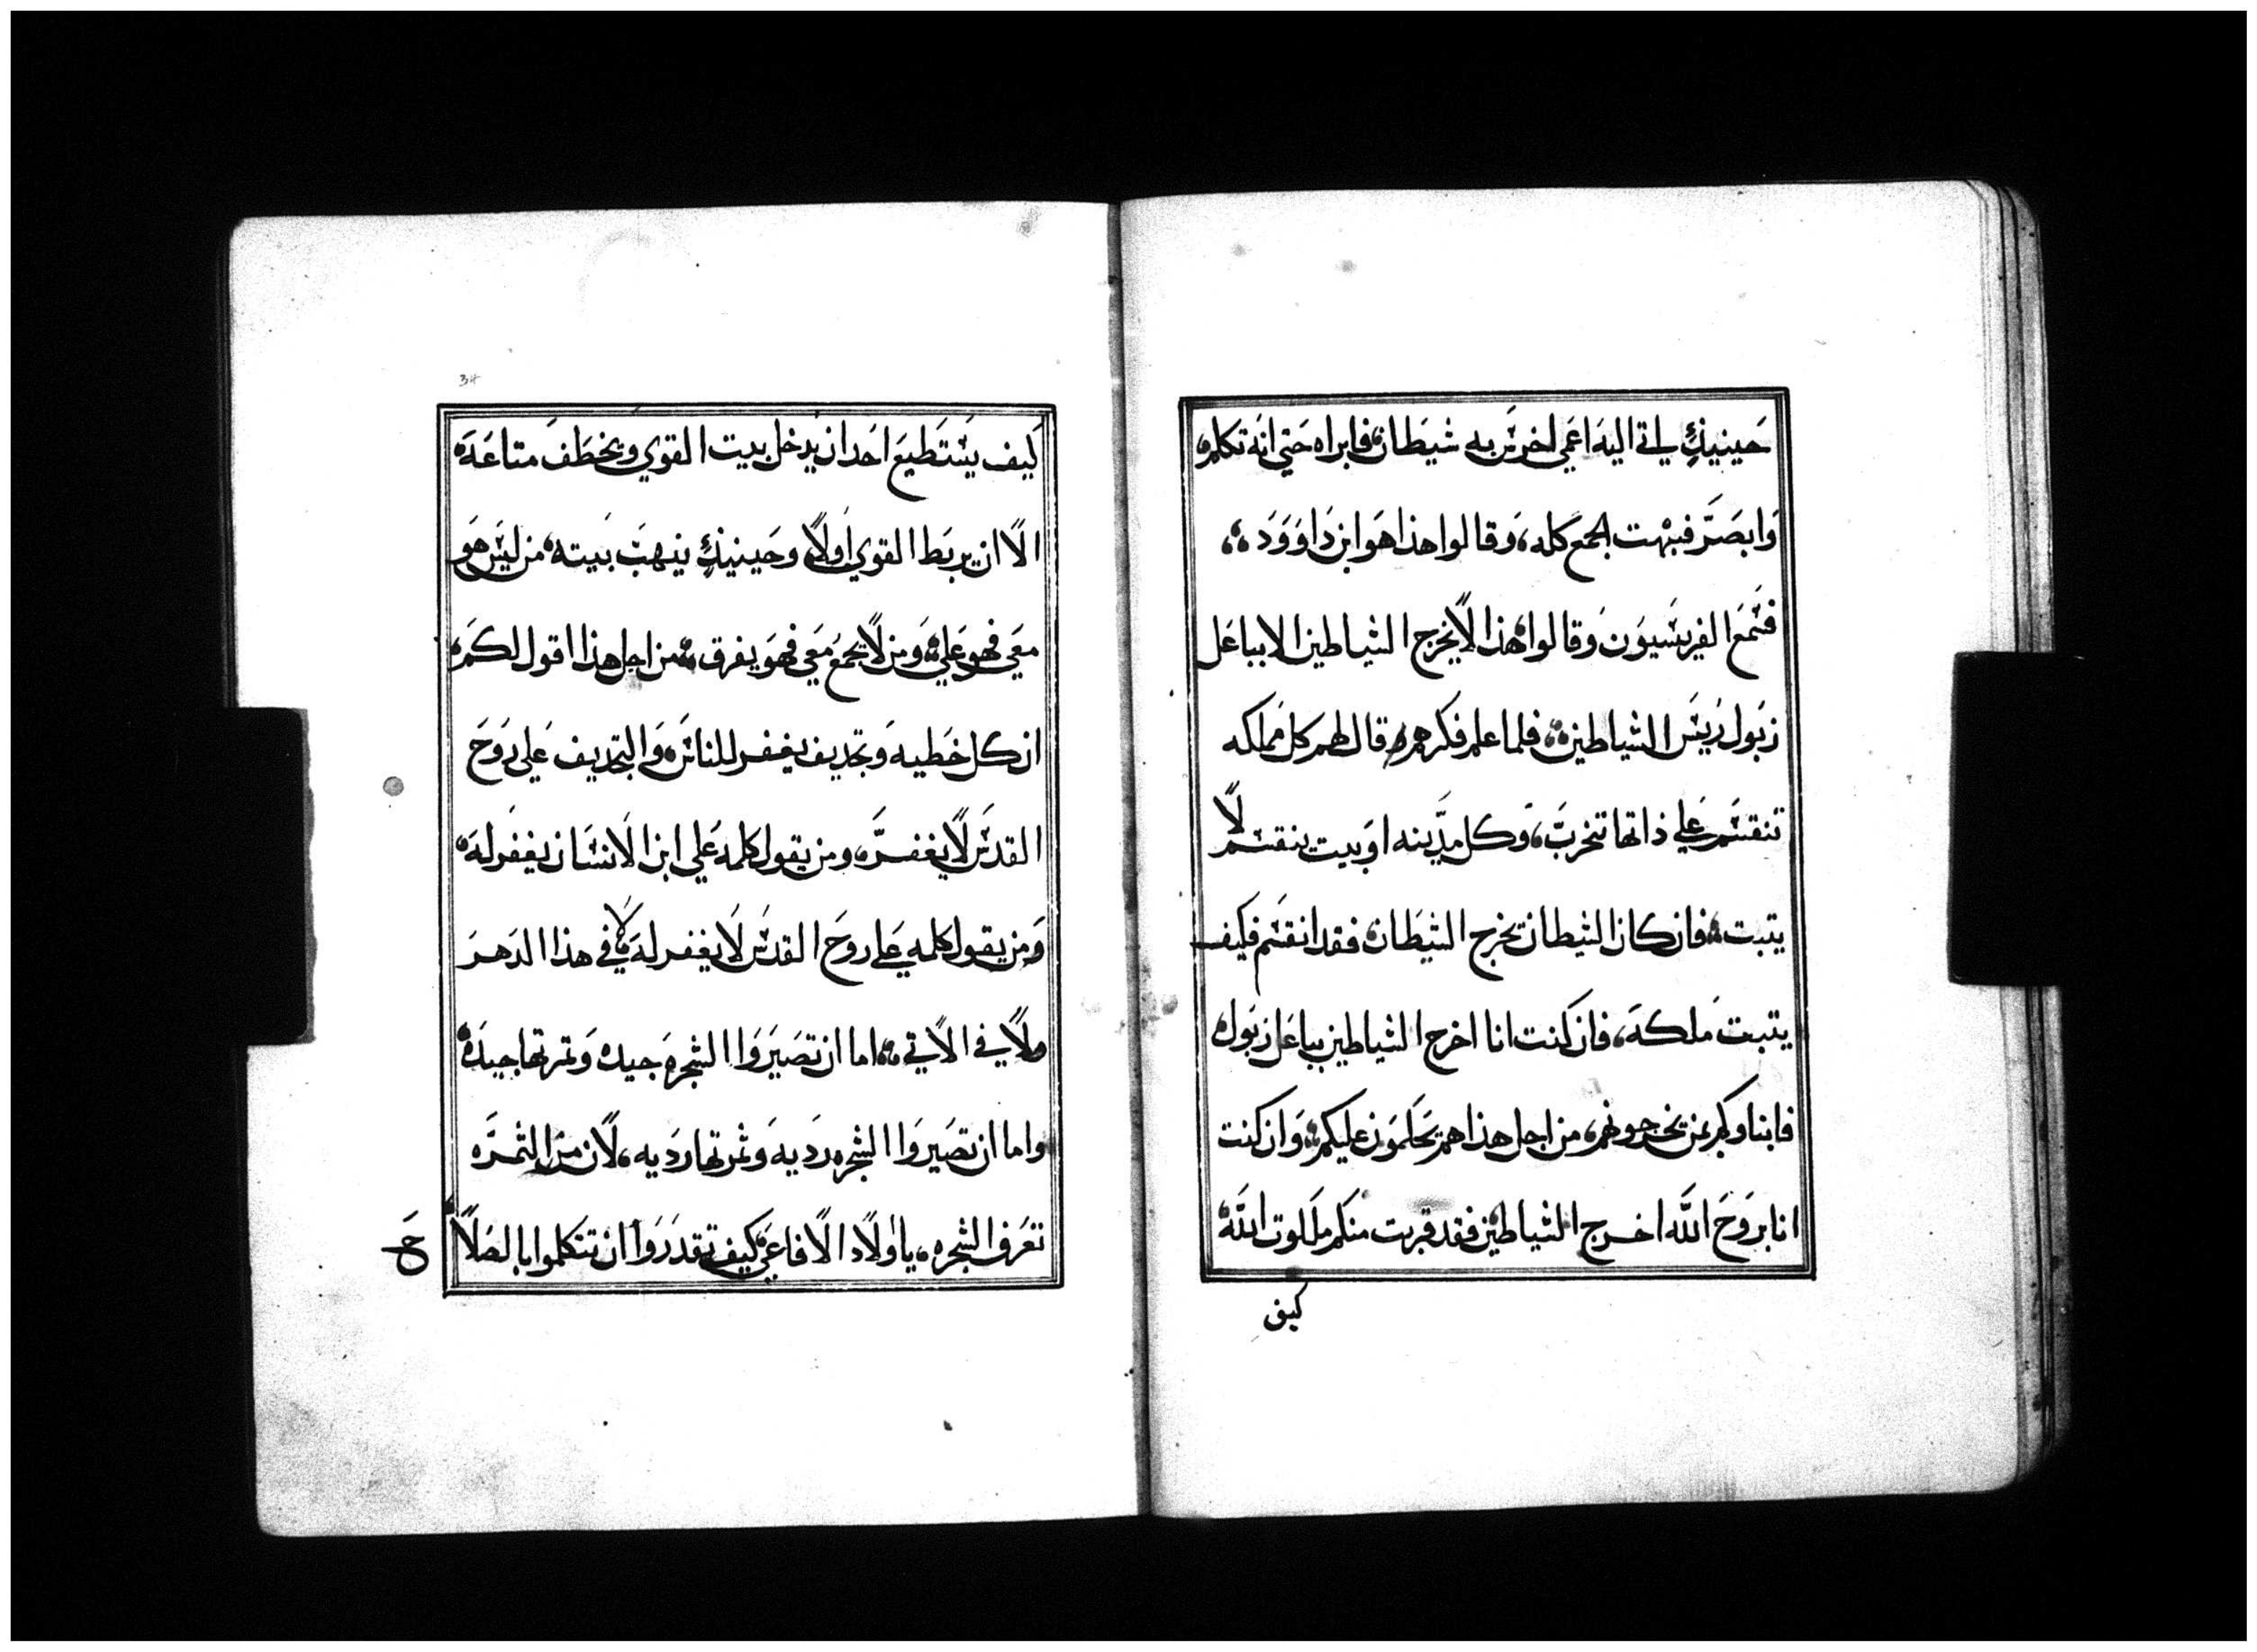 حينيذٍ ياتي اليه اعمي اخرس به شيطان، فابراه حتي انه تكلم
وابصر فبهت الجمع كله، وقالوا هذا هو ابن داوود،
فسمع الفريسيون وقالوا هذا لا يخرج الشياطين الا بباعل
زبول رييس الشياطين، فلما علم فكرهم قال لهم كل مملكه
تنقسم علي ذاتها تخرب، وكل مدينه او بيت ينقسم لا
يتبت، فان كان الشيطان يخرج الشيطان، فقد انقسم فكيف
يتبت ملكه، فان كنت انا اخرج الشياطين بباعل زبول،
فابناوكم بمن يخرجونهم، من اجل هذا هم يحكمون عليكم، وان كنت
انا بروح الله اخرج الشياطين، فقد قربت منكم ملكوت الله
كيف
34
كيف يستطيع احد ان يدخل بيت القوي ويخطف متاعه
الا ان يربط القوي اولاً وحينيذٍ ينهب بيته، من ليس هو
معي فهو علي، ومن لا يجمع معي فهو يفرق، من اجل هذا اقول لكم،
ان كل خطيه وتجديف يغفر للناس، والتجديف علي روح
القدس لا يغفر، ومن يقول كلمه علي ابن الانسان يغفر له،
ومن يقول كلمه علي روح القدس لا يغفر له لا في هذا الدهر
ولا في الاتي، اما ان تصيروا الشجره جيده وتمرتها جيده،
واما ان تصيروا الشجره رديه وثمرتها رديه، لان من التمره
تعرف الشجره، يا اولاد الافاعي كيف تقدروا ان تتكلموا بالصلا
ح